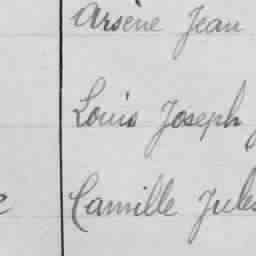 Arsène Jean
Louis Joseph
Camille Jules